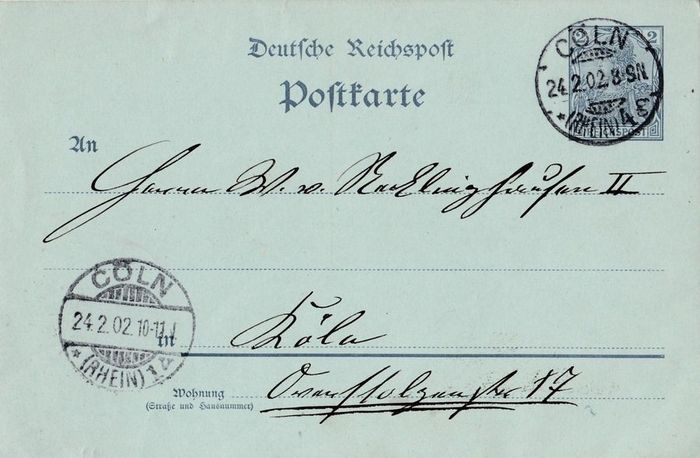 Deutsche Reichspost
Postkarte
2
CÖLN
24.2.02.8-9N
*(RHEIN)
REICHSPOST
An
Herrn W. v. Recklinghausen II
CÖLN
24.2.02.10-11
*(RHEIN)
in Köln
Wohnung
(Straße und Hausnummer)
Overstolzenstr 17